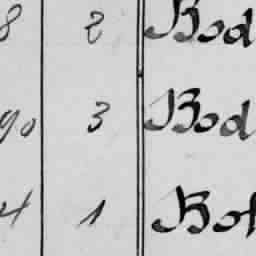 8 2 Bod
90 3 Bod
4 1 Bot